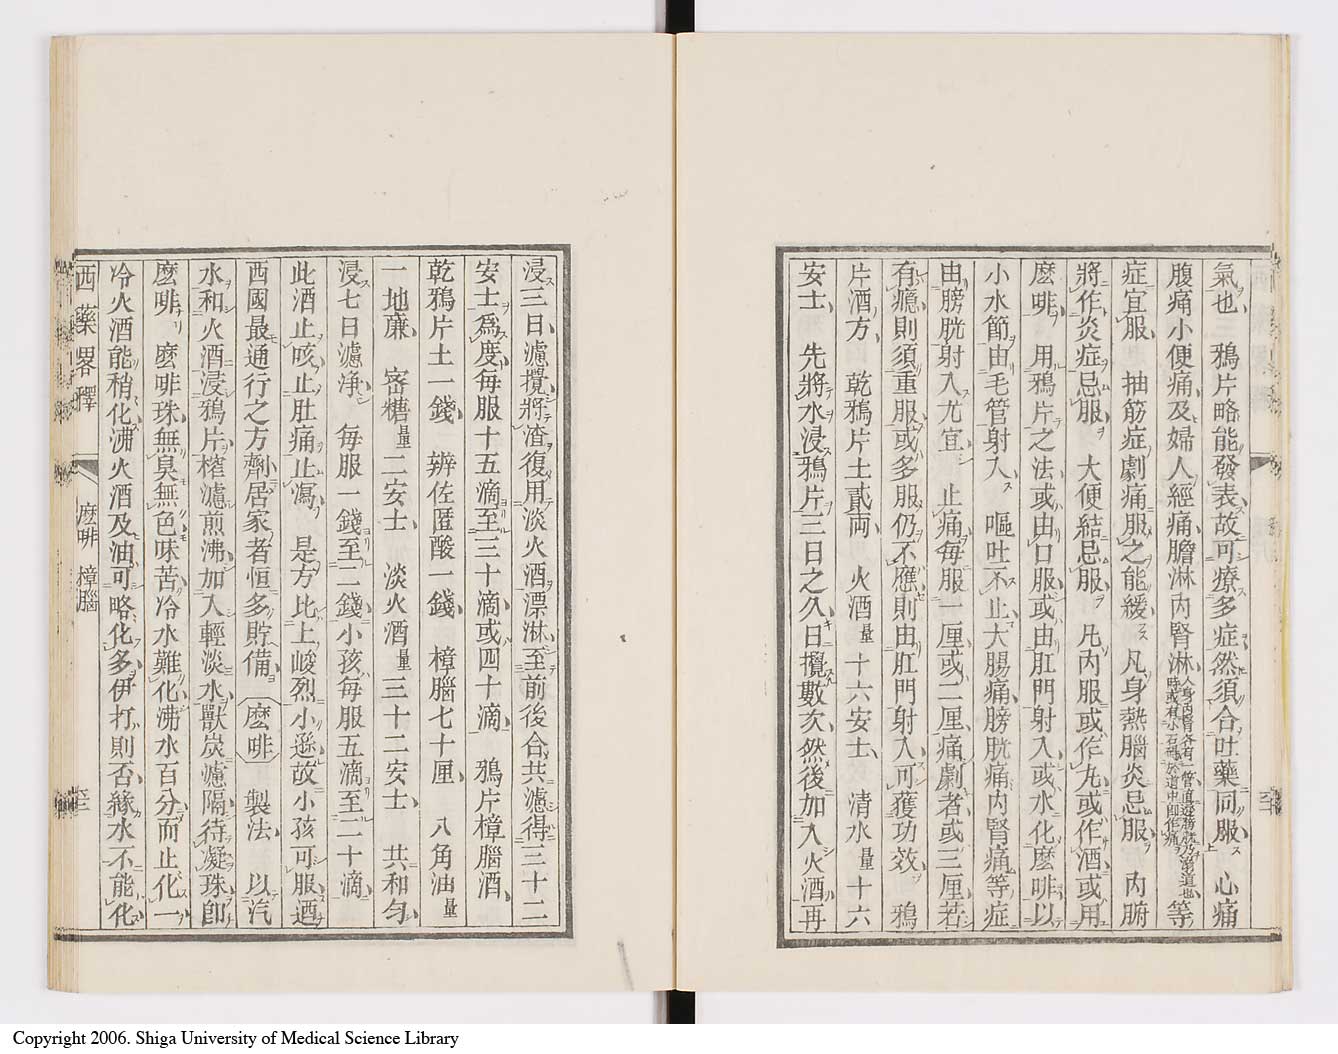 氣也 鴉片略能發表故可療多症然須合吐藥同服 心痛
腹痛小便痛及婦人經痛膽淋內腎淋人身內腎各有一管直達膀胱乃溺道也時或有小石礙於道中即作痛等
症宜服 抽筋症劇痛服之能緩 凡身熱腦炎忌服 內腑
將作炎症忌服 大便結忌服 凡內服或作丸或作酒或用
麼啡 用鴉片之法或由口服或由肛門射入或水化麼啡以
小水節由毛管射入 嘔吐不止大腸痛膀胱痛內腎痛等症
由膀胱射入尤宜 止痛每服一厘或二厘痛劇者或三厘若
有癮則須重服或多服仍不應則由肛門射入可獲功效 鴉
片酒方 乾鴉片土貳兩 火酒量十六安士 清水量十六
安士 先將水浸鴉片三日之久日攪數次然後加入火酒再
浸三日濾攪將渣復用淡火酒漂淋至前後合共濾得三十二
安士為度每服十五滴至三十滴或四十滴 鴉片樟腦酒
乾鴉片土一錢 辨佐匿酸一錢 樟腦七十厘 八角油量
一地廉 密糖量二安士 淡火酒量三十二安士 共和勻
浸七日濾淨 每服一錢至二錢小孩每服五滴至二十滴
此酒止咳止肚痛止瀉 是方比上峻烈小遜故小孩可服迺
西國最通行之方劑居家者恒多貯備 麼啡 製法 以汽
水和火酒浸鴉片榨濾煎沸加入輕淡水獸炭濾隔待凝珠卽
麼啡 麼啡珠無臭無色味苦冷水難化沸水百分而止化一
冷火酒能稍化沸火酒及油可略化多伊打則否緣水不能化
西藥畧釋 麼啡 樟腦